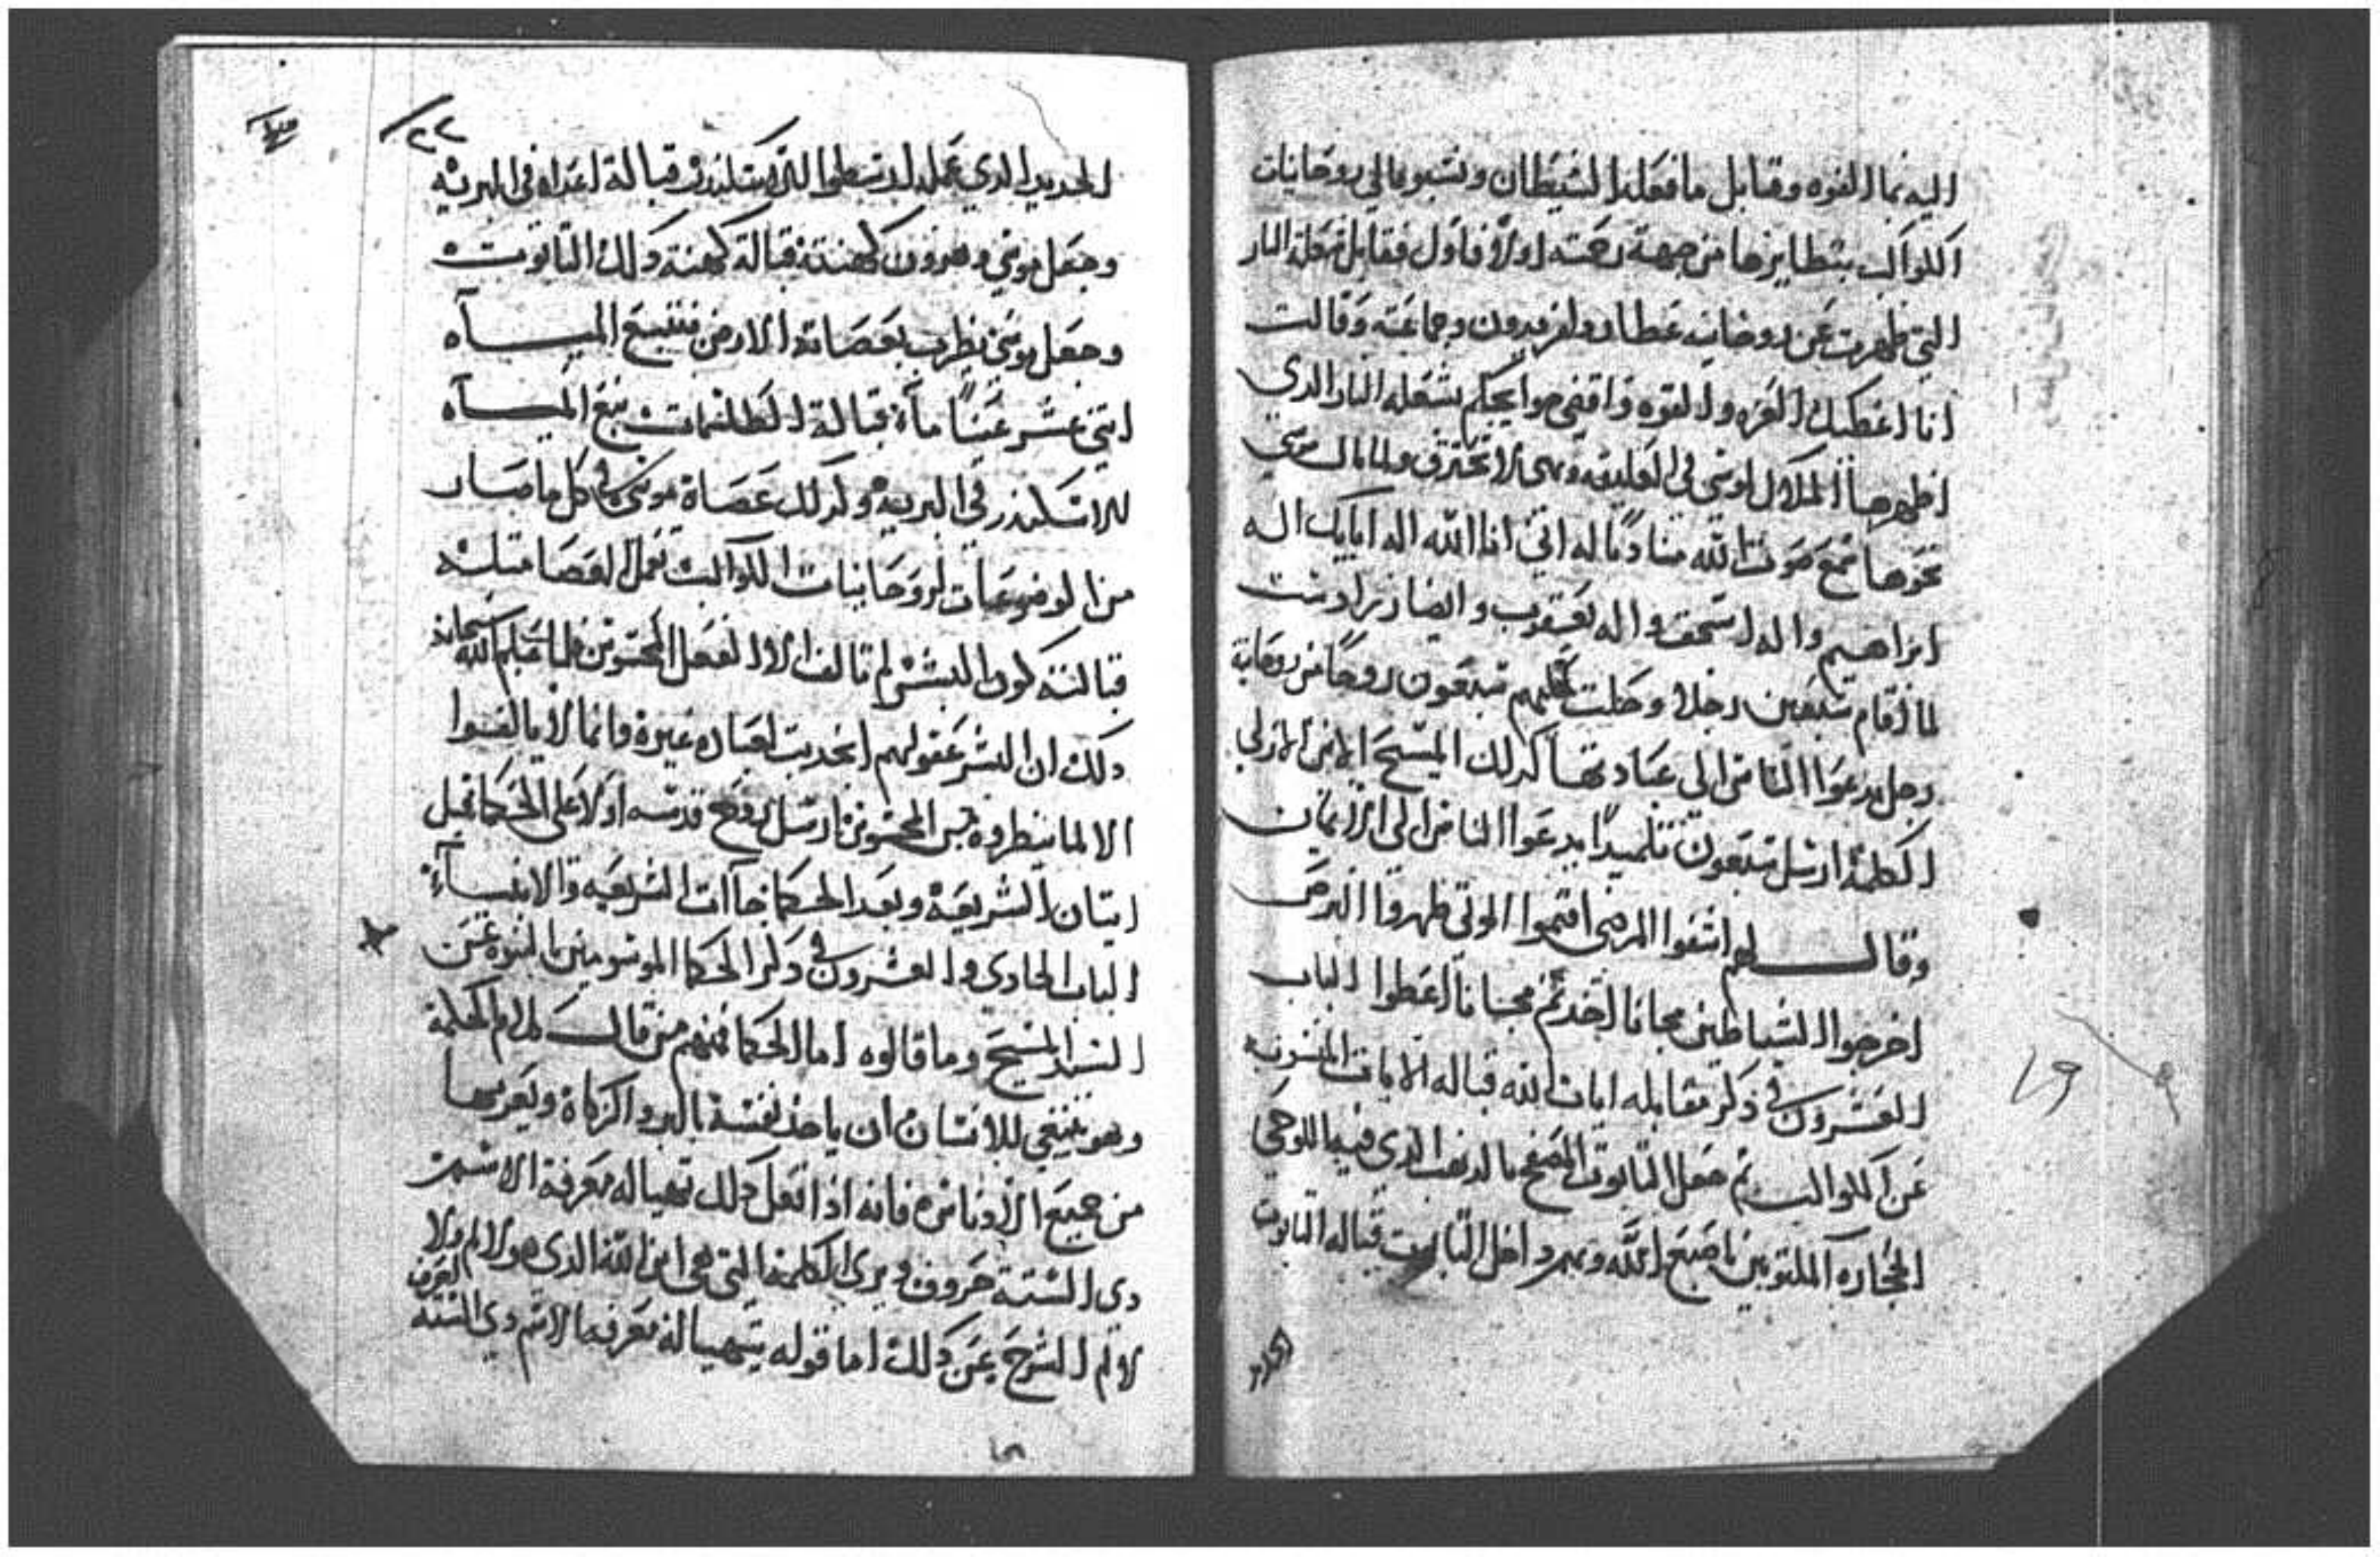 اليه بما القوه وقابل ما فعله الشيطان ونسبوها الي روحانيات
الكواكب بنظايرها من جهة رحمته اولا فاول فقابل شعلة النار
التي ظهرت عن روحانيه عطارد لفريدون وجماعته وقالت
انا اعطيك العزه والقوه واقضي حوايجكم بشعله النار الدي
اظهرها الملاك لموسي في العليقه وهي لا تحترق ولما مال موسي
نحوها سمع صوت الله مناديا له اني انا الله اله ابايك اله
ابراهيم واله اسحق واله يعقوب وايضا زرادشت
لما اقام سبعين رجلا وحلت عليهم سبعون روحا من روحانية
زحل يدعوا الناس الي عبادتها كدلك المسيح الابن الازلي
الكلمة ارسل سبعون تلميدا يدعوا الناس الي الايمان
وقال لهم اشفوا المرضي اقيموا الموتي طهروا البرص
اخرجوا الشياطين مجانا اخدتم مجانا اعطوا الباب
العشرون في دكر مقابله ايات الله قباله الايات المنسوبه
عن الكواكب ثم جعل التابوت المصفح بالدهب الدي فيه اللوحي
الحجاره المكتوبين باصبع الله وهم داخل التابوت قباله التابوت
الحديد
٢٢
الحديد الدي عمله ارسطوا للاسكندر قبالة اعداه في البريه
وجعل موسي وهرون كهنته قبالة كهنة دلك التابوت
وجعل موسي يضرب بعصاته الارض فتنبع المياه
اتني عشر عينا ماء قبالة الطلسمات نبع المياه
للاسكندر في البريه وكدلك عصاة موسي في كل ما صار
من الموضوعات لروحانيات الكواكب تعمل العصا متله
قبالته كون البشر لم تالف الا الفعل المحسوس فلما علم الله سبحانه
دلك ان البشر عقولهم انجدبت لعباده غيره وانما لا يالفوا
الا لما ينظروه بحس المحسوس ارسل روح قدسه اولا علي الحكما قبل
اتيان الشريعة وبعد الحكما جاات الشريعه والانبياء
الباب الحادي والعشرون في دكر الحكما الموسومين بالنبوه عن
السيد المسيح وما قالوه اما الحكما فمنهم من قال كلام الحكمة
وهو ينبغي للانسان ان ياخد نفسه بالبر والزكاة ويعريها
من جميع الادناس فانه ادا فعل دلك تهيا له معرفة الاسم
دي الستة حروف ويري الكلمة التي هي ابن الله الدي هو لا لم ولا
لاثم الشرح عن دلك اما قوله يتهيا له معرفه الاسم دي السته